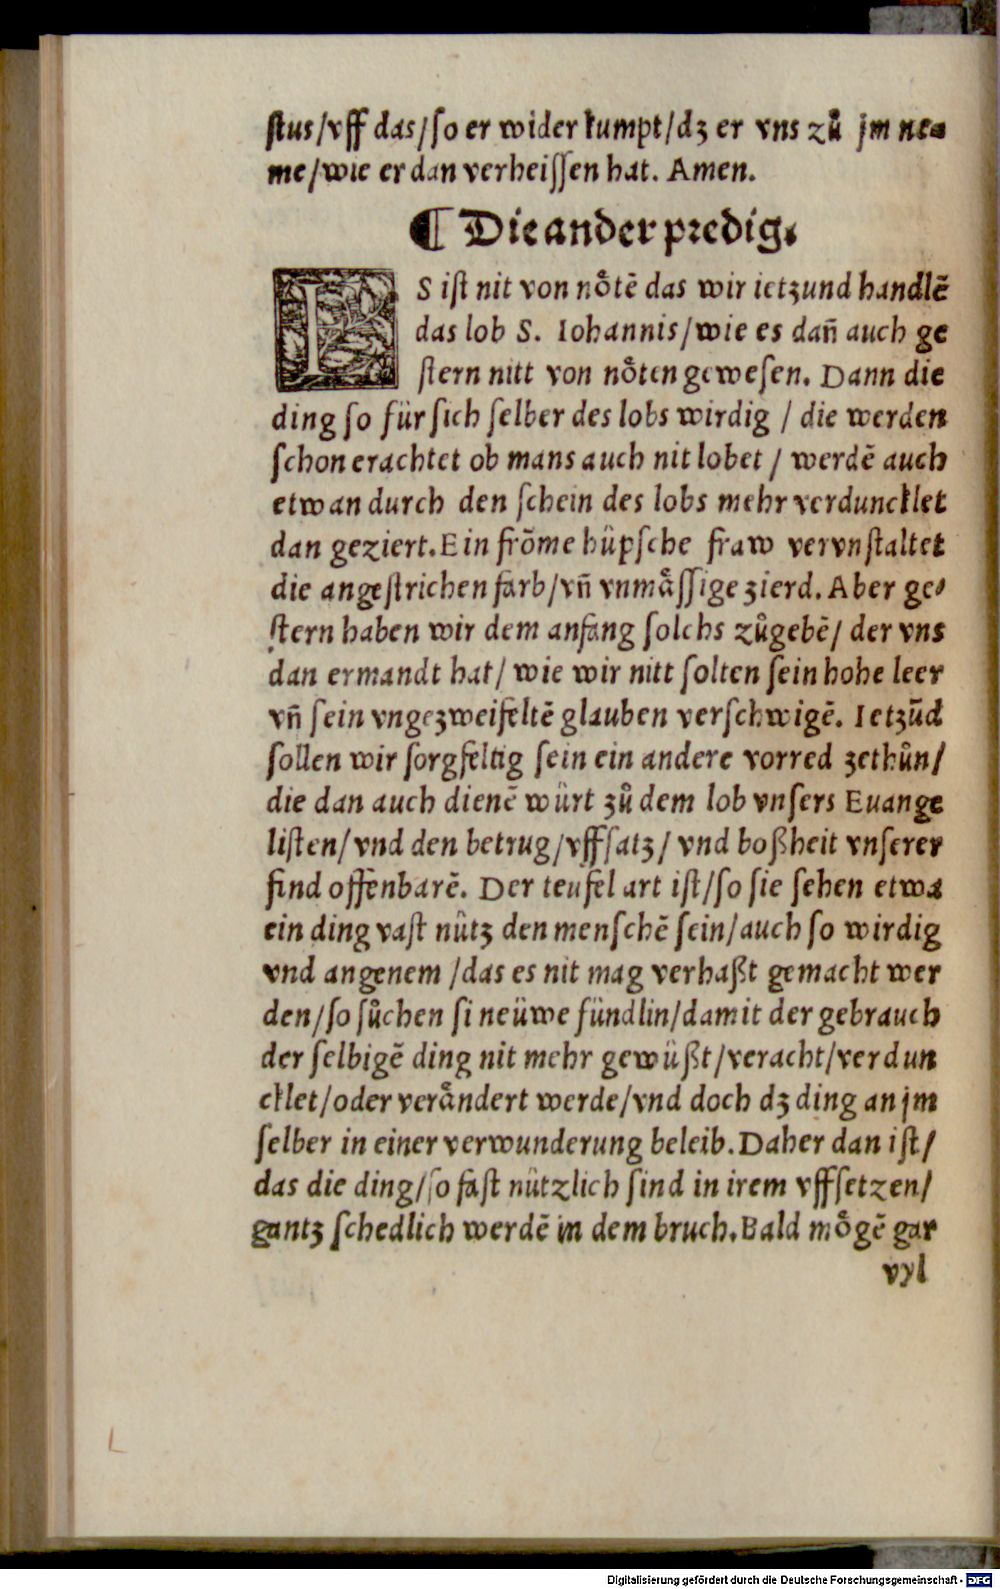 ſtus/vff das/ſo er wider kumpt/dʒ er vns zů jm ne⸗
me/wie er dan verheiſſen hat. Amen.
¶ Die ander predig.
ES iſt nit von nͦoͤtē das wir ietzund handlē
das lob S. Iohannis/wie es dañ auch ge
ſtern nitt von noͤten geweſen. Dann die
ding ſo für ſich ſelber des lobs wirdig / die werden
ſchon erachtet ob mans auch nit lobet / werdē auch
etwan durch den ſchein des lobs mehr verduncklet
dan geziert. Ein frōme hüpſche fraw vervnſtaltet
die angeſtrichen farb/vñ vnmaͤſſige zierd. Aber ge⸗
ſtern haben wir dem anfang ſolchs zůgebē/ der vns
dan ermandt hat/ wie wir nitt ſolten ſein hohe leer
vñ ſein vngezweifeltē glauben verſchwigē. Ietzūd
ſollen wir ſorgfeltig ſein ein andere vorred zethůn/
die dan auch dienē würt zů dem lob vnſers Euange
liſten/ vnd den betrug/vffſatz/ vnd boßheit vnſerer
find offenbarē. Der teufel art iſt/ſo ſie ſehen etwa
ein ding vaſt nütz den menſchē ſein/auch ſo wirdig
vnd angenem /das es nit mag verhaßt gemacht wer
den/ſo ſůchen ſi neüwe fündlin/damit der gebrauch
der ſelbigē ding nit mehr gewüßt/veracht/verdun
cklet/oder veraͤndert werde/vnd doch dʒ ding an jm
ſelber in einer verwunderung beleib. Daher dan iſt/
das die ding/ſo faſt nützlich ſind in irem vffſetzen/
gantz ſchedlich werdē in dem bruch. Bald moͤgē gar
vyl
Digitalisierung gefördert durch die Deutsche Forschungsgemeinschaft - DFG